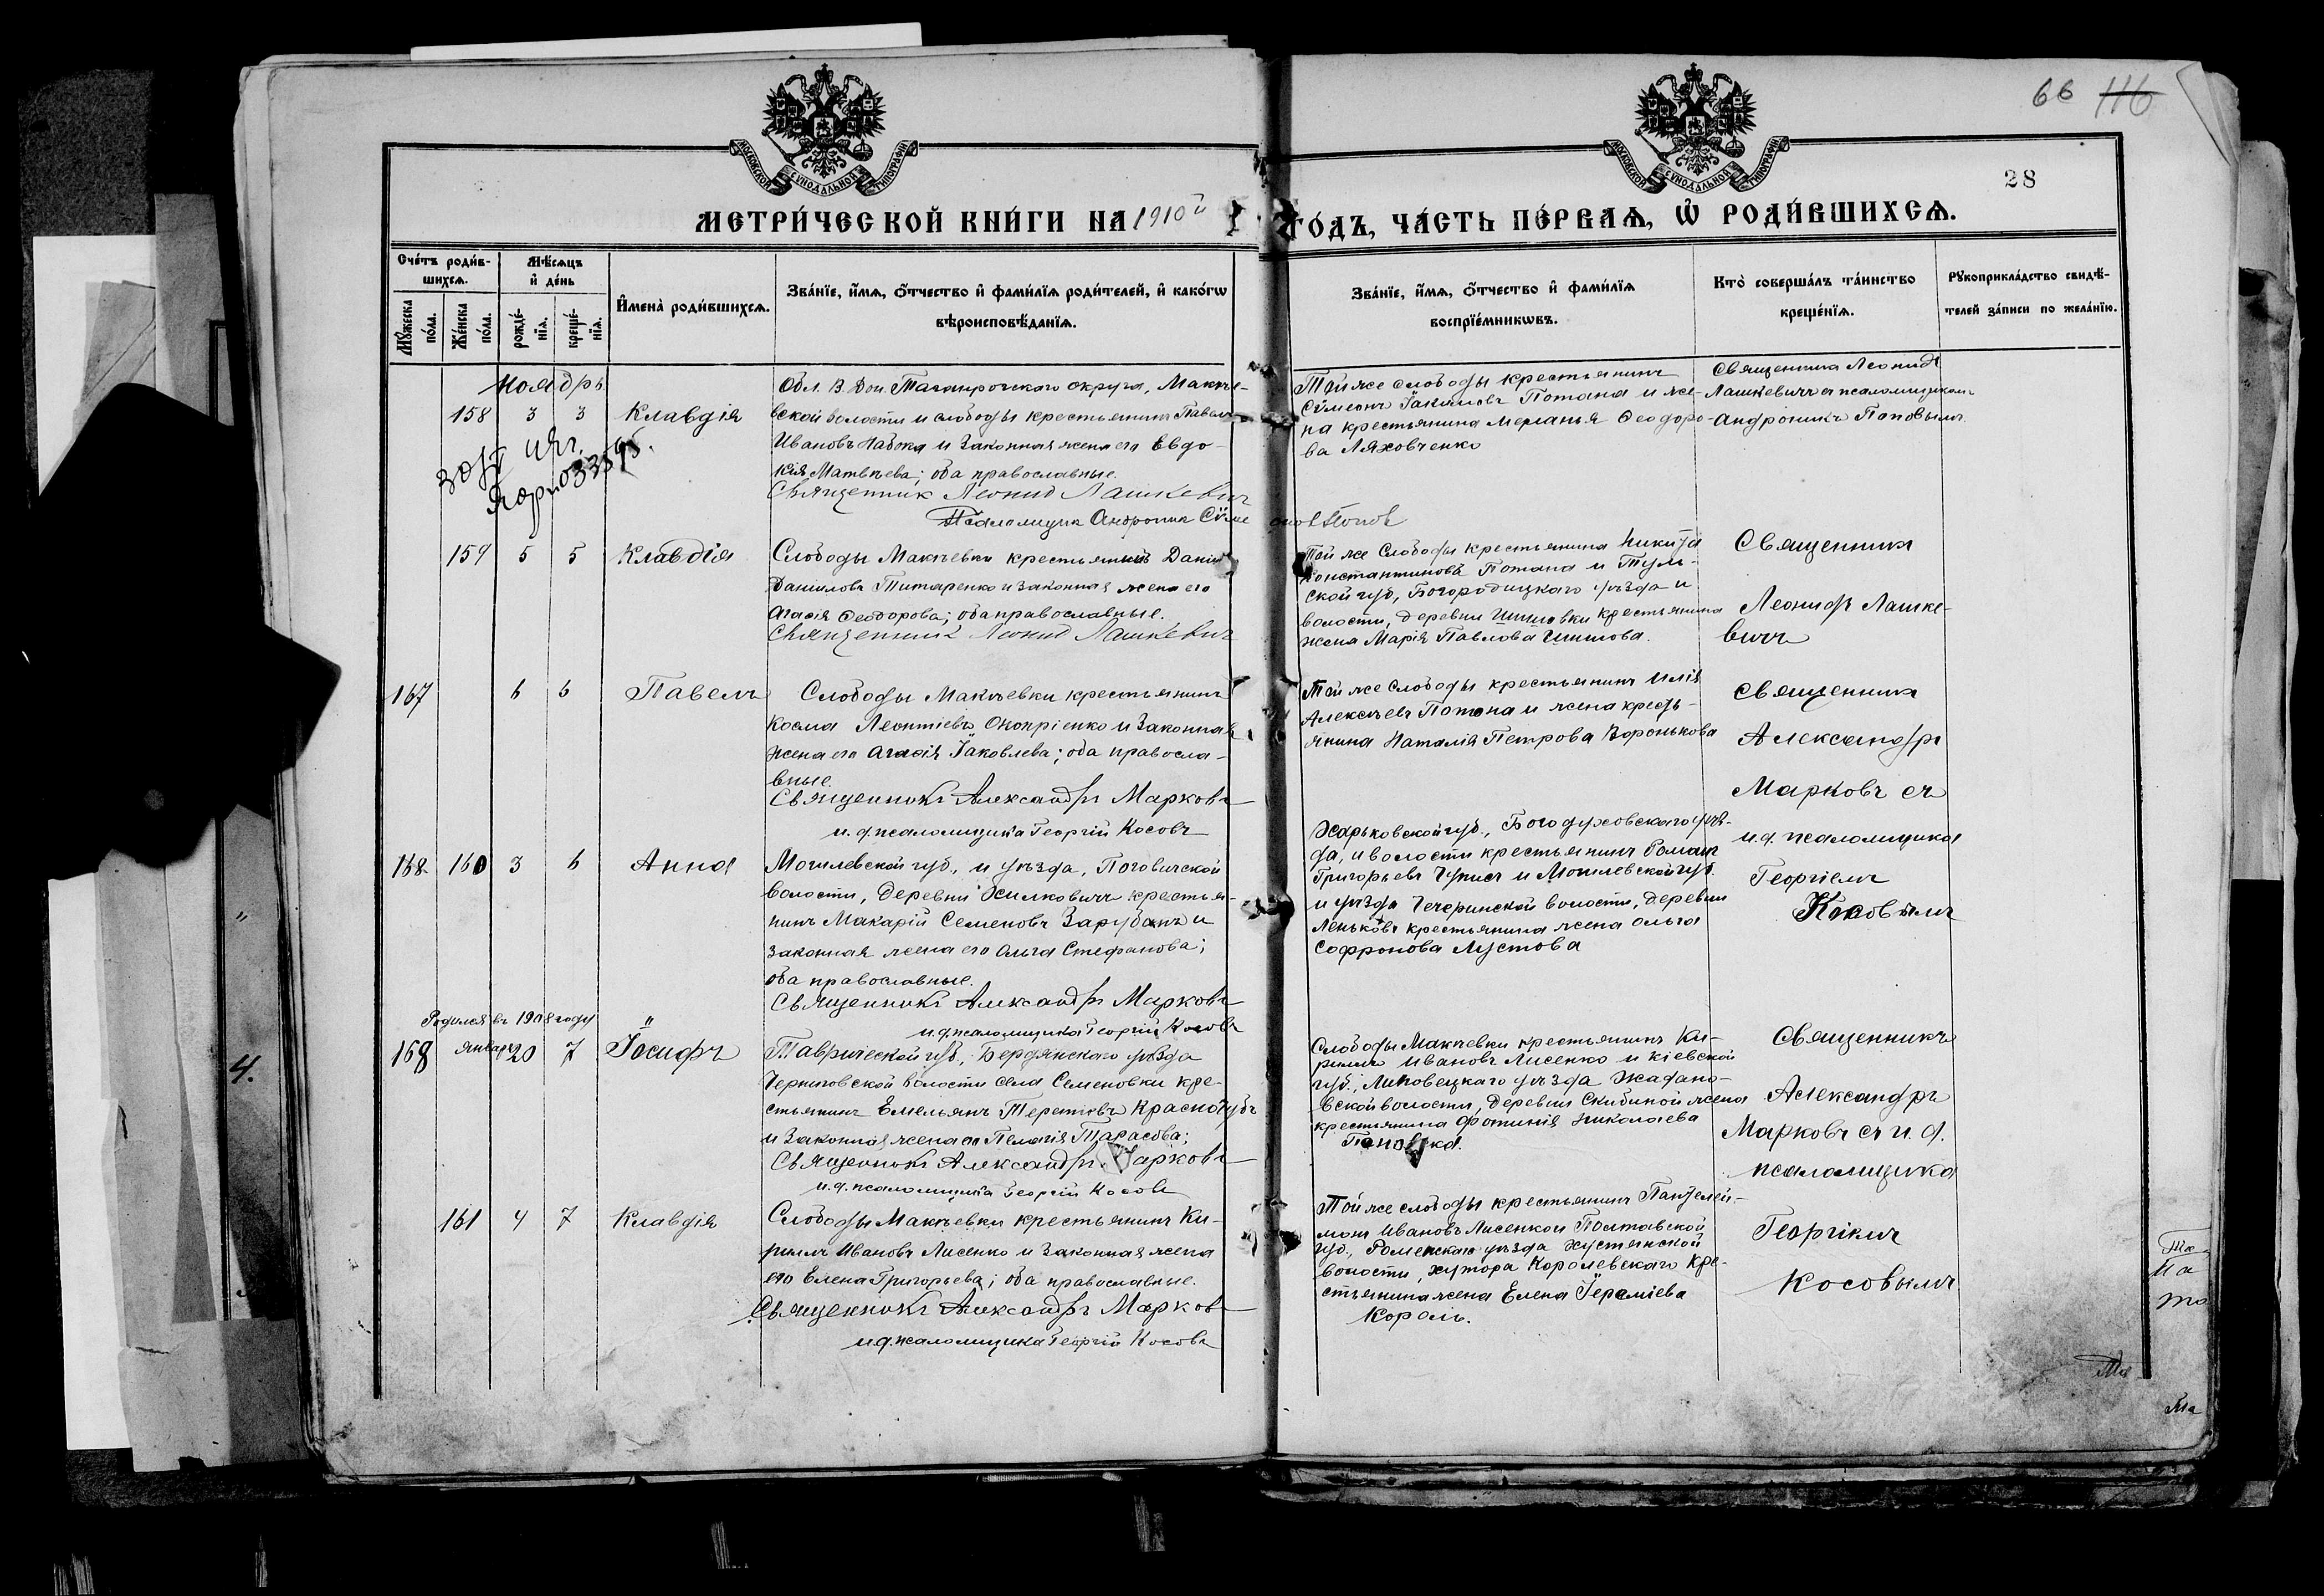 66 116
28
МОСКОВСКОЙ СУНОДАЛЬНОЙ ТИПОГРАФІИ
МОСКОВСКОЙ СУНОДАЛЬНОЙ ТИПОГРАФІИ
МЕТРИ́ЧЕСКОЙ КНИ́ГИ НА 1910й ГО́ДЪ, ЧА́СТЬ ПЕ́РВАѦ, Ѡ҆ РОДИ́ВШИХСѦ.
Сче́тъ роди́в-
шихсѧ.
Мꙋ́жеска по́ла.
Же́нска по́ла.
Мѣ́сѧцъ
и҆ де́нь
рожде́-нїѧ.
креще́-нїѧ.
И҆мена̀ роди́вшихсѧ.
Зва́нїе, и҆́мѧ, ѻ҆́тчество и҆ фами́лїѧ роди́телей, и҆ како́гѡ
вѣроисповѣ́данїѧ.
Зва́нїе, и҆́мѧ, ѻ҆́тчество и҆ фами́лїѧ
воспрїе́мникѡвъ.
Кто̀ соверша́лъ та́инство
креще́нїѧ.
Рꙋкоприкла́дство свидѣ́-
телей за́писи по жела́нїю.
Ноябрь
158 3 3 Клавдія
Обл. В. Дон. Таганрогскаго округа, Макѣе-
вской волости и слободы крестьянинъ Павелъ
Ивановъ Набока и законная жена его Евдо-
кія Матвѣева; оба православные.
Священник Леонид Лашкевич
Псаломщик Андроник Сѵмеонов Попов
Той же слободы крестьянинъ
Сѵмеонъ Іакимовъ Потапа и же-
на крестьянина Меланья Ѳеодоро-
ва Ляховченко
Священникъ Леонидъ
Лашкевичъ съ псаломщикомъ
Андроникъ Поповымъ
159 5 5 Клавдія
Слободы Макѣевки крестьянинъ Даніилъ
Даниловъ Титаренко и законная жена его
Агаѳія Ѳеодорова; оба православные.
Священник Леонид Лашкевич
Той же слободы крестьянинъ Никита
Константиновъ Потапа и Туль-
ской губ., Богородицкаго уѣзда и
волости, деревни Шиловки крестьянина
жена Марія Павлова Шилова.
Священникъ
Леонидъ Лашке-
вичъ
167 6 6 Павелъ
Слободы Макѣевки крестьянинъ
Косма Леонтіевъ Оноприенко и законная
жена его Агаѳія Іаковлева; оба правосла-
вные.
Священникъ Александръ Марковъ
и. д. псаломщика Георгій Косовъ
Той же слободы крестьянинъ Илія
Алексѣевъ Потапа и жена кресть-
янина Наталія Петрова Воронькова
Священникъ
Александръ
Марковъ съ
и. д. псаломщика
Георгіемъ
Косовымъ
168 160 3 6 Анна
Могилевской губ., и уѣзда,
волости, деревни крестья-
нинъ Макарій Семеновъ Зарубанъ и
законная жена его Ольга Стефанова;
оба православные.
Священникъ Александръ Марковъ
и. д. псаломщика Георгій Косовъ
Харьковской губ., Богодуховскаго уѣз-
да, и волости крестьянинъ Романъ
Григорьевъ и Могилевской губ.
и уѣзда волости, деревни
крестьянина жена Ольга
Софронова Лустова
Родился въ 1908 году
168 Января 20 7 Іосифъ
Таврической губ., Бердянскаго уѣзда
Черниговской волости села Семеновки кре-
стьянинъ Емельянъ Терентіевъ Краснокубъ
и законная жена его Пелагія Тарасова;
Священникъ Александръ Марковъ
и. д. псаломщика Георгій Косовъ
Слободы Макѣевки крестьянинъ Ки-
риллъ Ивановъ Лисенко и Кіевской
губ., Липовецкаго уѣзда Жадано-
вской волости, деревни Скибиной жена
крестьянина Фотинія Николаева
Священникъ
Александръ
Марковъ съ и. д.
псаломщика
Георгіемъ
Косовымъ
161 4 7 Клавдія
Слободы Макѣевки крестьянинъ Ки-
риллъ Ивановъ Лисенко и законная жена
его Елена Григорьева; оба православные.
Священникъ Александръ Марковъ
и. д. псаломщика Георгій Косовъ
Той же слободы крестьянинъ Пантелей-
монъ Ивановъ Лисенко и Полтавской
губ., Роменскаго уѣзда Хустянской
волости, хутора Королевскаго кре-
стьянина жена Елена Іереміева
Король.
4.